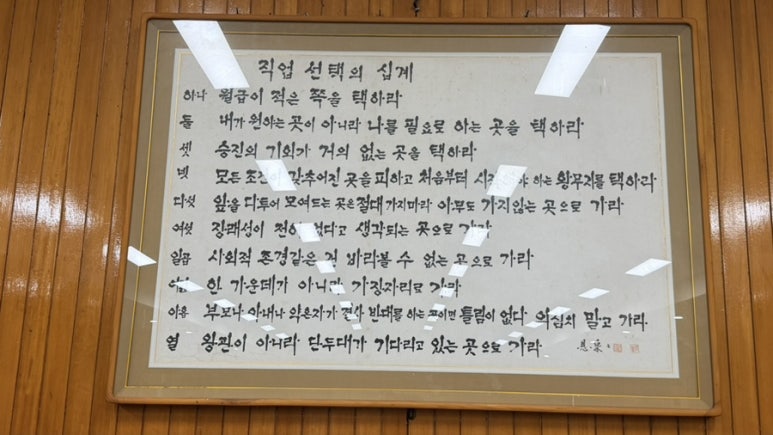 직업 선택의 십계
하나 월급이 적은 쪽을 택하라
둘 내가 원하는 곳이 아니라 나를 필요로 하는 곳을 택하라
셋 승진의 기회가 거의 없는 곳을 택하라
넷 모든 조건이 갖추어진 곳을 피하고 처음부터 시작해야 하는 황무지를 택하라
다섯 앞을 다투어 모여드는 곳은 절대 가지마라 아무도 가지않는 곳으로 가라
여섯 장래성이 전혀 없다고 생각되는 곳으로 가라
일곱 사회적 존경같은 건 바라볼 수 없는 곳으로 가라
여덟 한 가운데가 아니라 가장자리로 가라
아홉 부모나 아내나 약혼자가 결사 반대를 하는 곳이면 틀림이 없다. 의심치 말고 가라
열 왕관이 아니라 단두대가 기다리고 있는 곳으로 가라